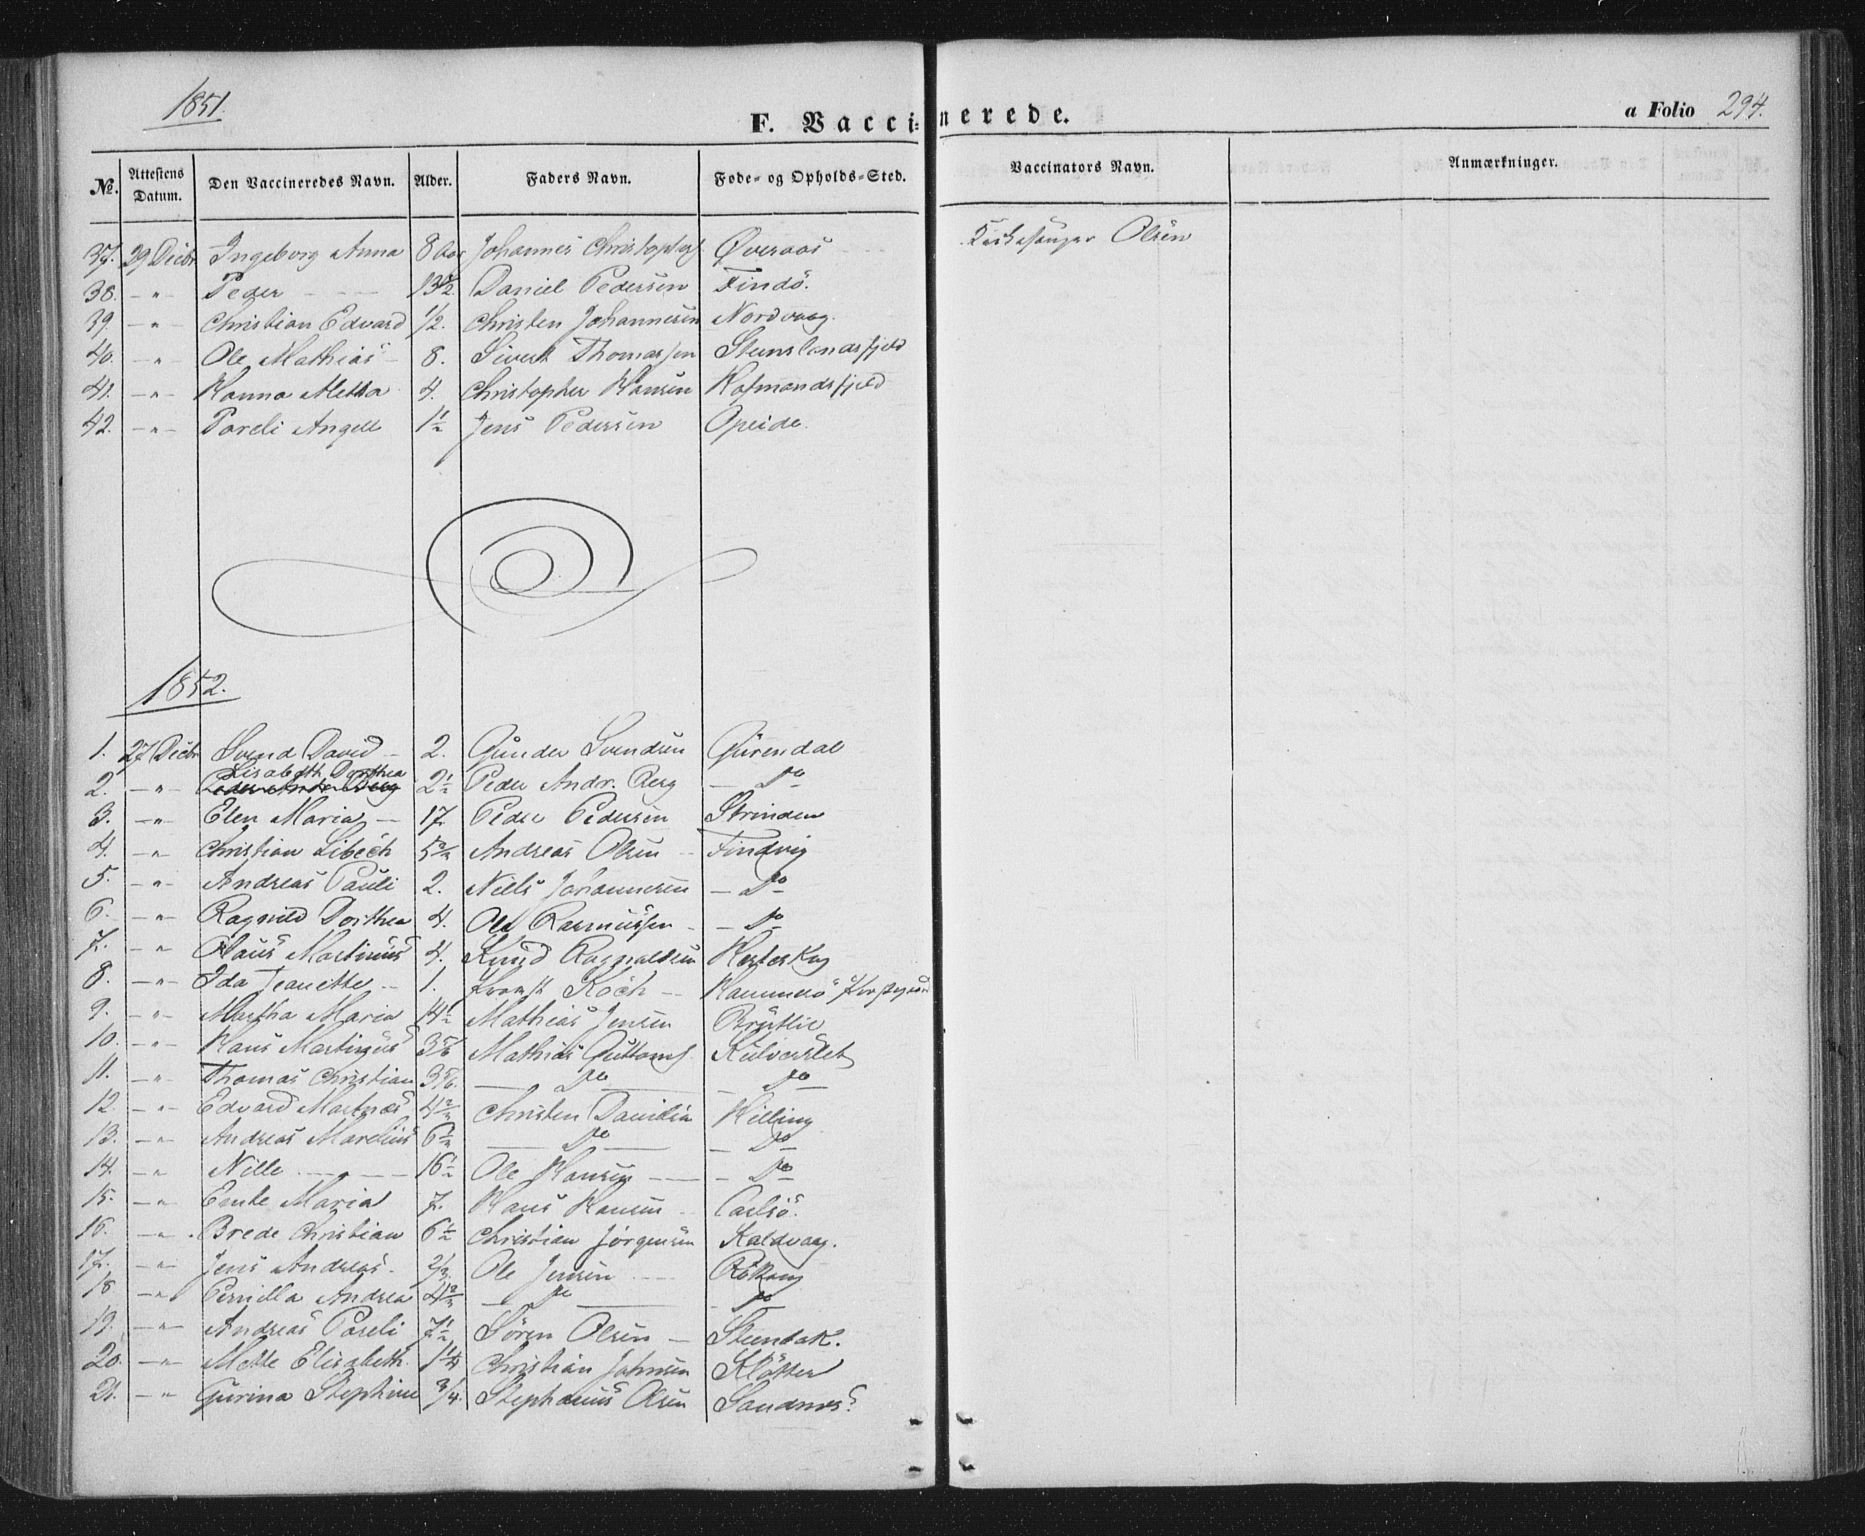 1851.
F. Vaccinerede.
a Folio 294.
No. Attestens Datum. Den Vaccineredes Navn. Alder. Faders Navn. Føde- og Opholds-Sted. Vaccinators Navn. Anmærkninger.
37. 29 Decbr Ingeborg Anna 8 Aar Johannes Christophers Øveraas Kirkesanger Olsen
38. -"- Peder 13½ Daniel Pedersen Findö.
39. -"- Christian Edvard ½. Christen Johannesen Nordvaag.
40. " Ole Mathias 8. Sivert Thomassen Stenslandsfjeld
41. -"- Hanna Metha 4. Christopher Hansen Hofmandsfjeld
42. -"- Pareli Angell 1½ Jens Pedersen Opeide.
1852.
1. 27 Decbr Svend David 2. Gunder Svendsen Gürendal
2. -"- Lisabeth Dorthea 2½ Peder Andr. Berg Do
3. -"- Elen Maria 17. Peder Pedersen Strinden
4. -"- Christian Libech Andreas Olsen Findvig
5. -"- Andreas Pauli 2. Niels Johannesen Do
6. -"- Ragnild Dorthea 4. Ole Rasmussen Do
7. -" Claus Martinus 4. Knud Ragnaldsen
8. -"- Ida Jeanette 1. Koch Hammerö
9. -"- Martha Maria 4½ Mathias Jensen
10. -"- Hans Martinus 3 5/6 Mathias Guttoms
11. -"- Thomas Christian 3 5/6. Do Do
12. -"- Edvard 4⅔ Christen Danielsen Hilling
13. -"- Andreas Marelius 6½ Do Do
14. -" Nille 16½ Ole Hansen Do
15. -"- Maria 7. Hans Hansen Carlsö.
16. -". Brede Christian 6½ Christian Jørgensen Kaldvaag.
17. -"- Jens Andreas 2/3. Ole Jensen
18. -" Pernilla Andrea 4⅔ Do Do
19. -"- Andreas Pareli 7½ Sören Olsen
20. -"- Mette Elisabeth 1¼ Christian Johnsen
21. -" Gurina Stephine ¾. Stephanus Olsen Sandnes